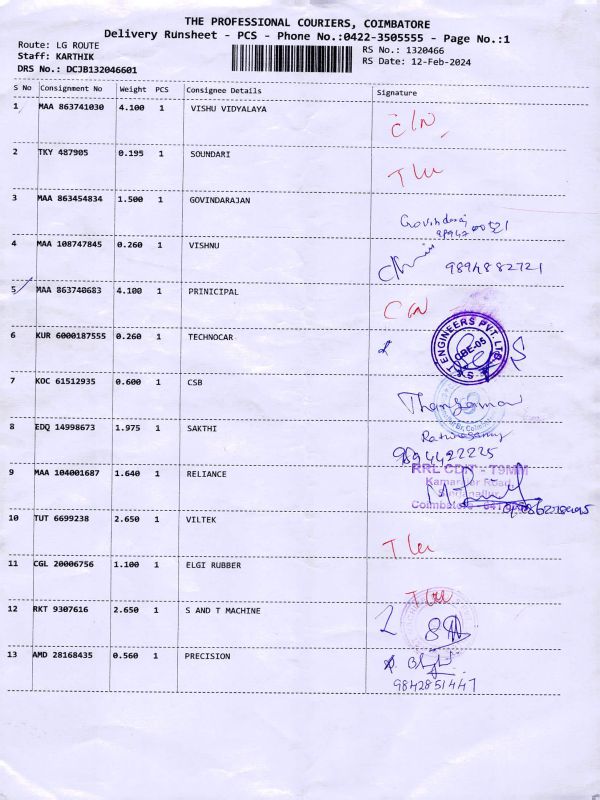 THE PROFESSIONAL COURIERS, COIMBATORE
Delivery Runsheet - PCS - Phone No.:0422-3505555 - Page No.:1
Route: LG ROUTE
Staff: KARTHIK
DRS No.: DCJB132046601
RS No.: 1320466
RS Date: 12-Feb-2024
S No Consignment No Weight PCS Consignee Details Signature
1 MAA 863741030 4.100 1 VISHU VIDYALAYA
2 TKY 487905 0.195 1 SOUNDARI
3 MAA 863454834 1.500 1 GOVINDARAJAN
Govindaraj
4 MAA 108747845 0.260 1 VISHNU
9894882721
5 MAA 863740683 4.100 1 PRINICIPAL
6 KUR 6000187555 0.260 1 TECHNOCAR
ENGINEERS PVT. LTD.
CBE-05
7 KOC 61512935 0.600 1 CSB
8 EDQ 14998673 1.975 1 SAKTHI
9894422225
9 MAA 104001687 1.640 1 RELIANCE
RRL CDIT - T9MM
Kamarajar Road
10 TUT 6699238 2.650 1 VILTEK
11 CGL 20006756 1.100 1 ELGI RUBBER
12 RKT 9307616 2.650 1 S AND T MACHINE
13 AMD 28168435 0.560 1 PRECISION
9842851447